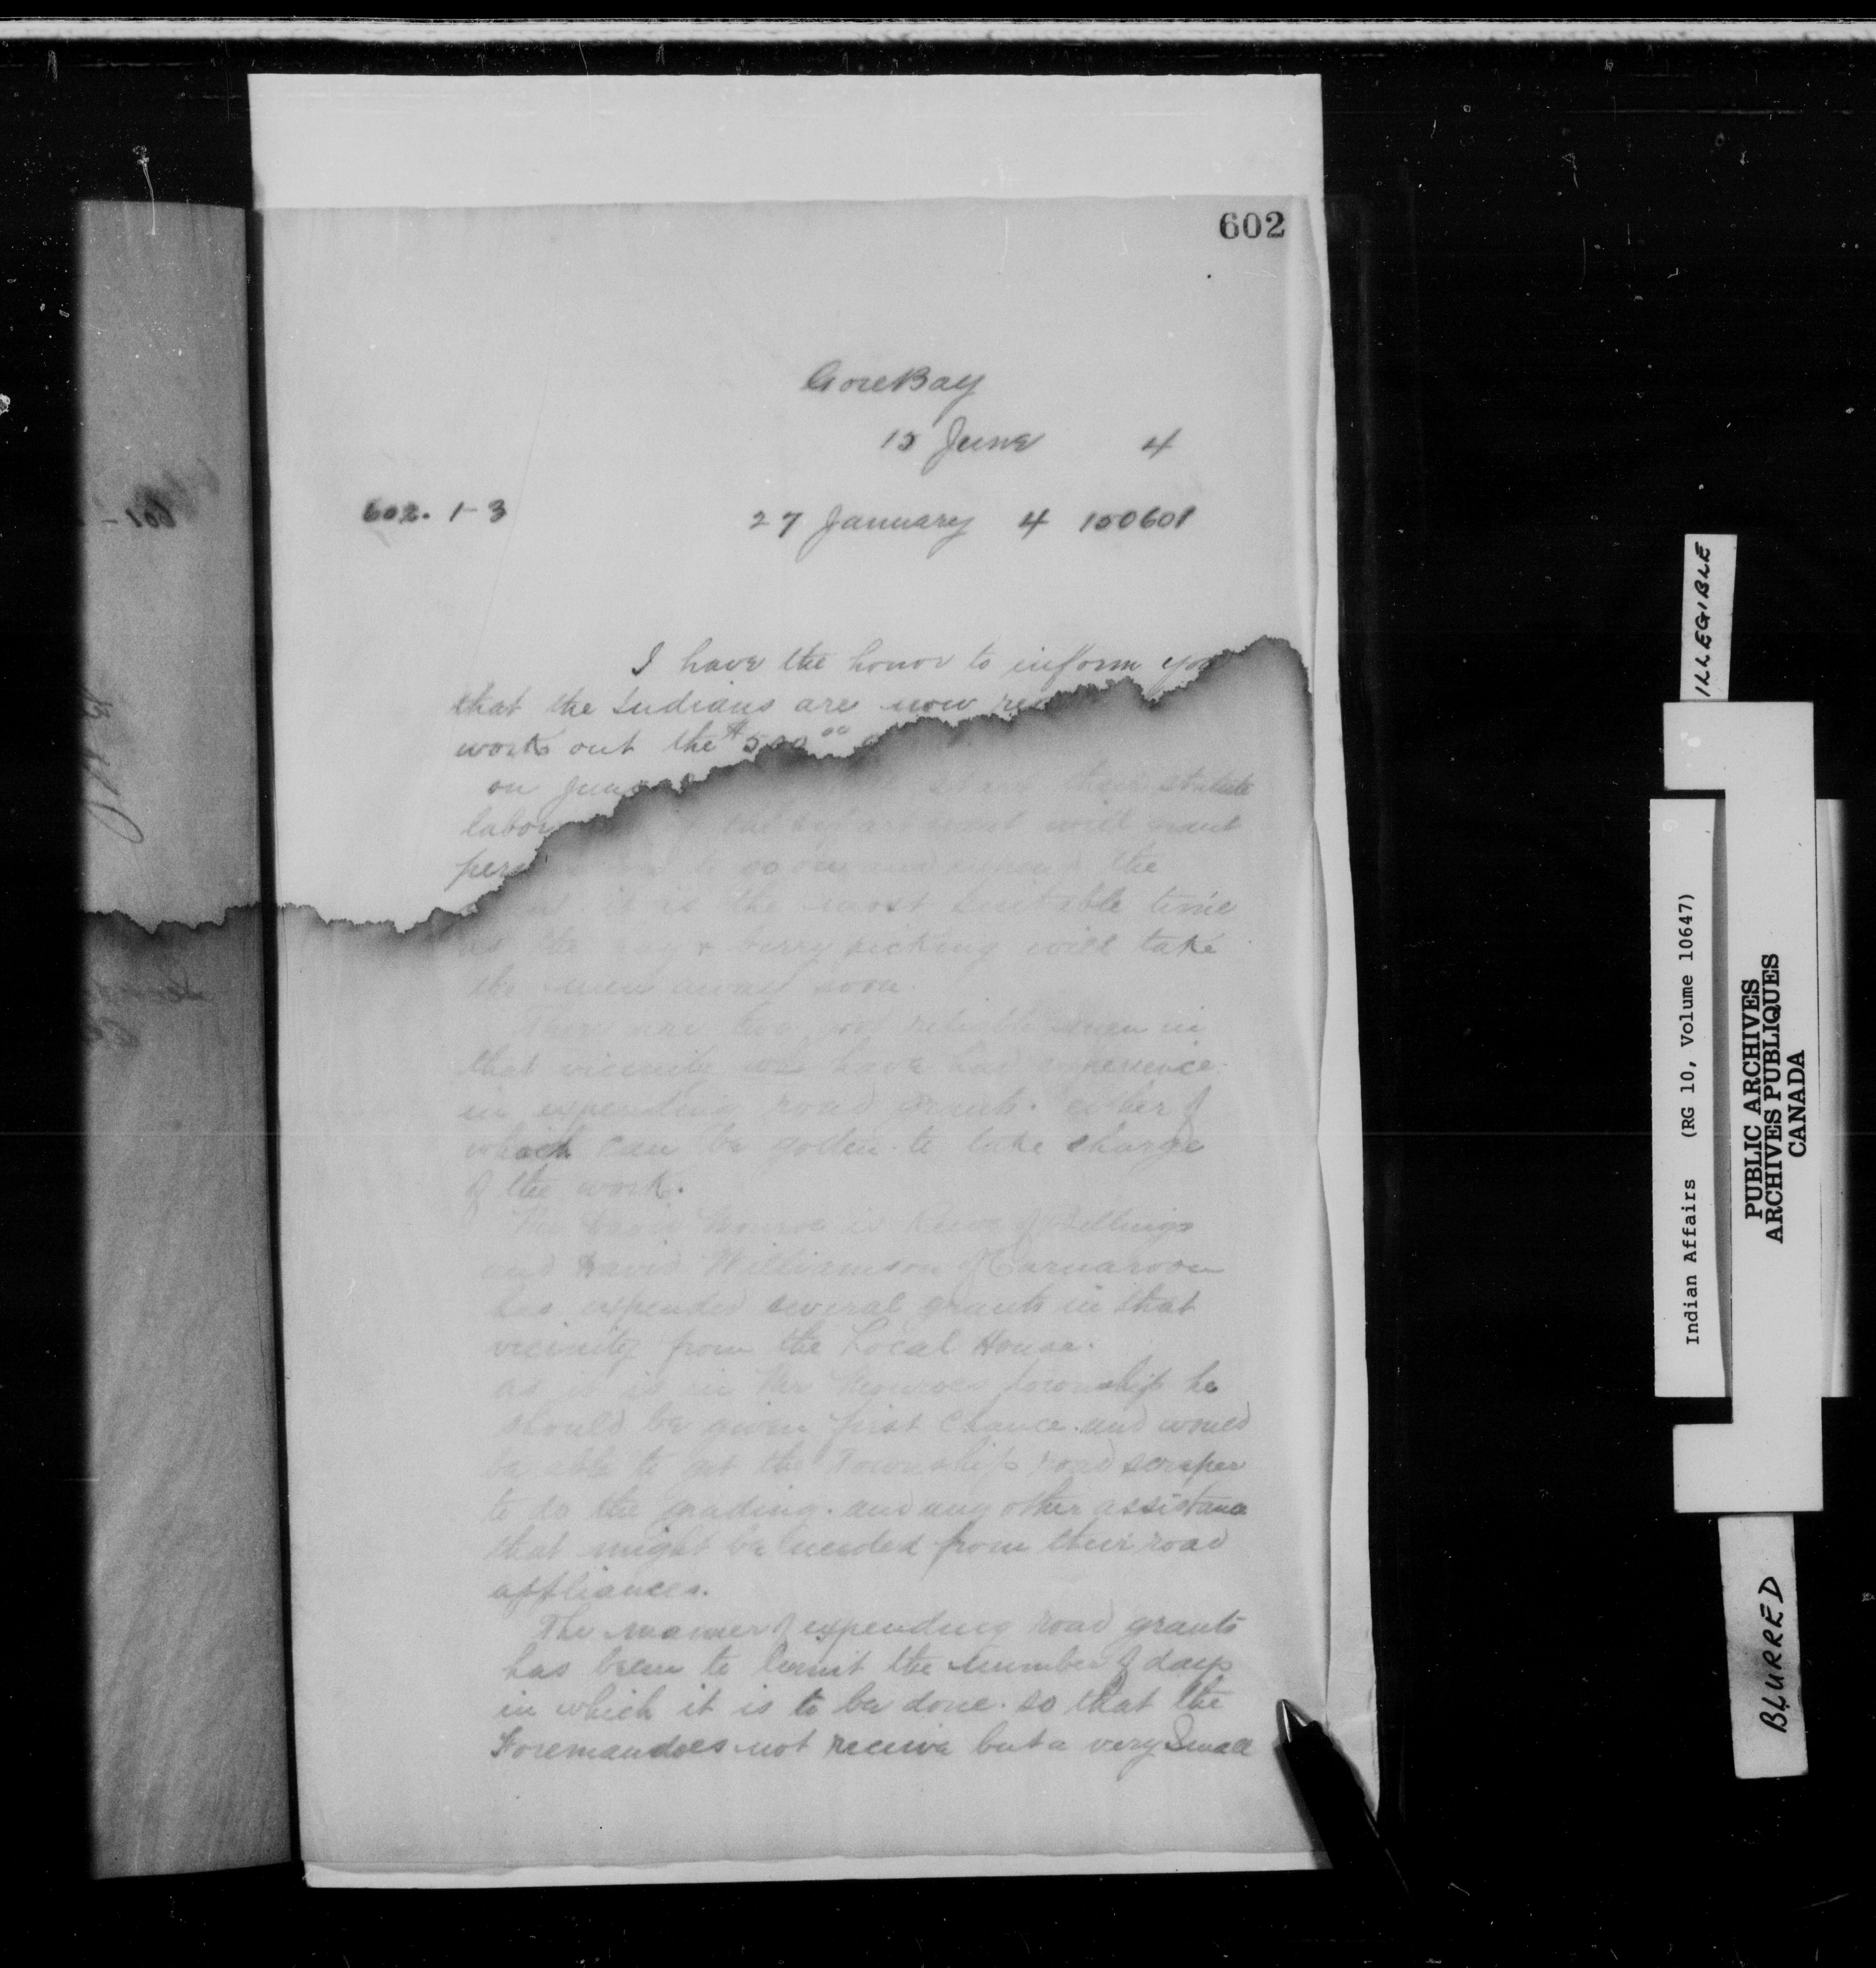 602
Gore Bay
15 June 4
602. 1-3 27 January 4 150601
I have the honor to inform you
that the Indians are now
work out the $500.00
on June their statute
labor the department will grant
the
it is the most suitable time
as the hay & berry picking will take
the men away soon.
There are two good reliable men in
that vicinity who have had experience
in expending road grants. either of
which can be gotten to take charge
of the work.
Mr David Monroe is Reeve of Billings
and David Williamson of Carnarvon
has expended several grants in that
vicinity from the Local House.
as it is in Mr Monroes township he
should be given first chance. and would
be able to get the Township road scraper
to do the grading. and any other assistance
that might be needed from their road
appliances.
The manner of expending road grants
has been to limit the number of days
in which it is to be done. so that the
Foreman does not receive but a very Small
601-
ILLEGIBLE
Indian Affairs (RG 10, Volume 10647)
PUBLIC ARCHIVES
ARCHIVES PUBLIQUES
CANADA
BLURRED